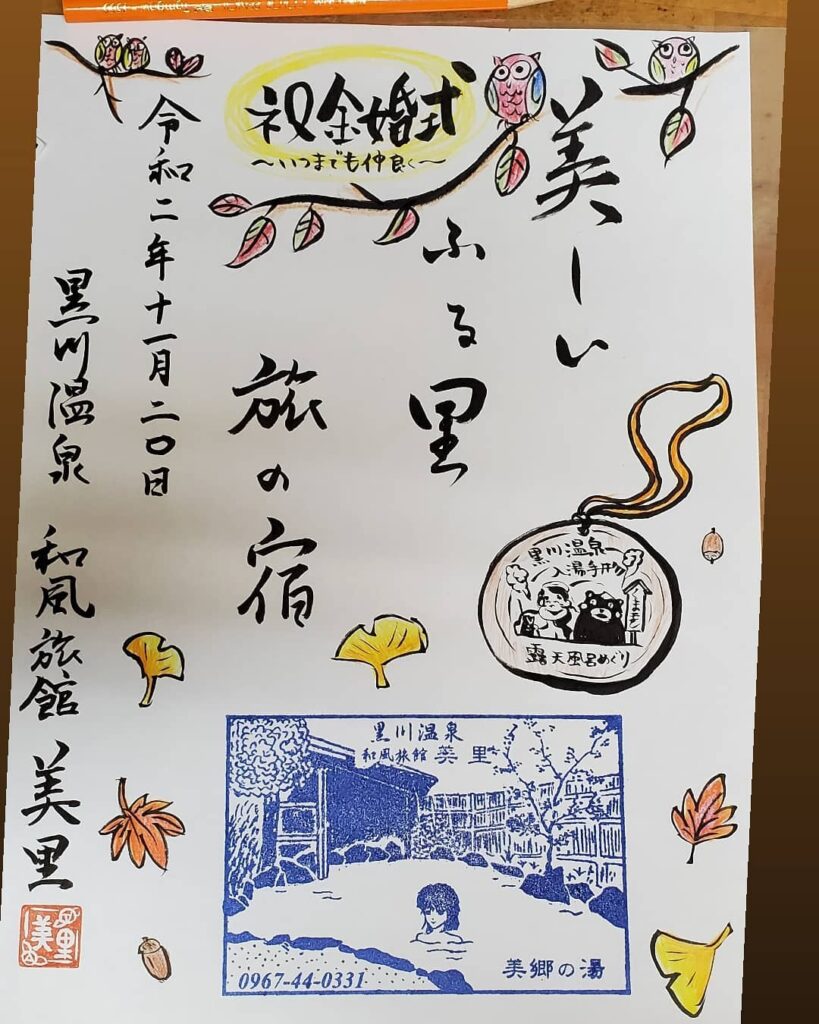 祝金婚式
～いつまでも仲良く～
美しい
ふる里
旅の宿
令和二年十一月二〇日
黒川温泉 和風旅館 美里
黒川温泉
入湯手形
くまモン
露天風呂めぐり
黒川温泉
和風旅館 美里
美郷の湯
0967-44-0331